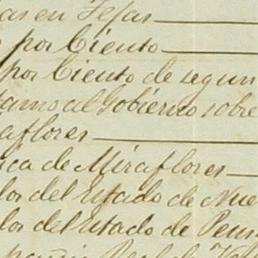 as en Tejas
por Ciento
por Ciento de segun
tamo al Gobierno sobre
aflores
ica de Miraflores
los del Estado de Nue
los del Estado de Penn